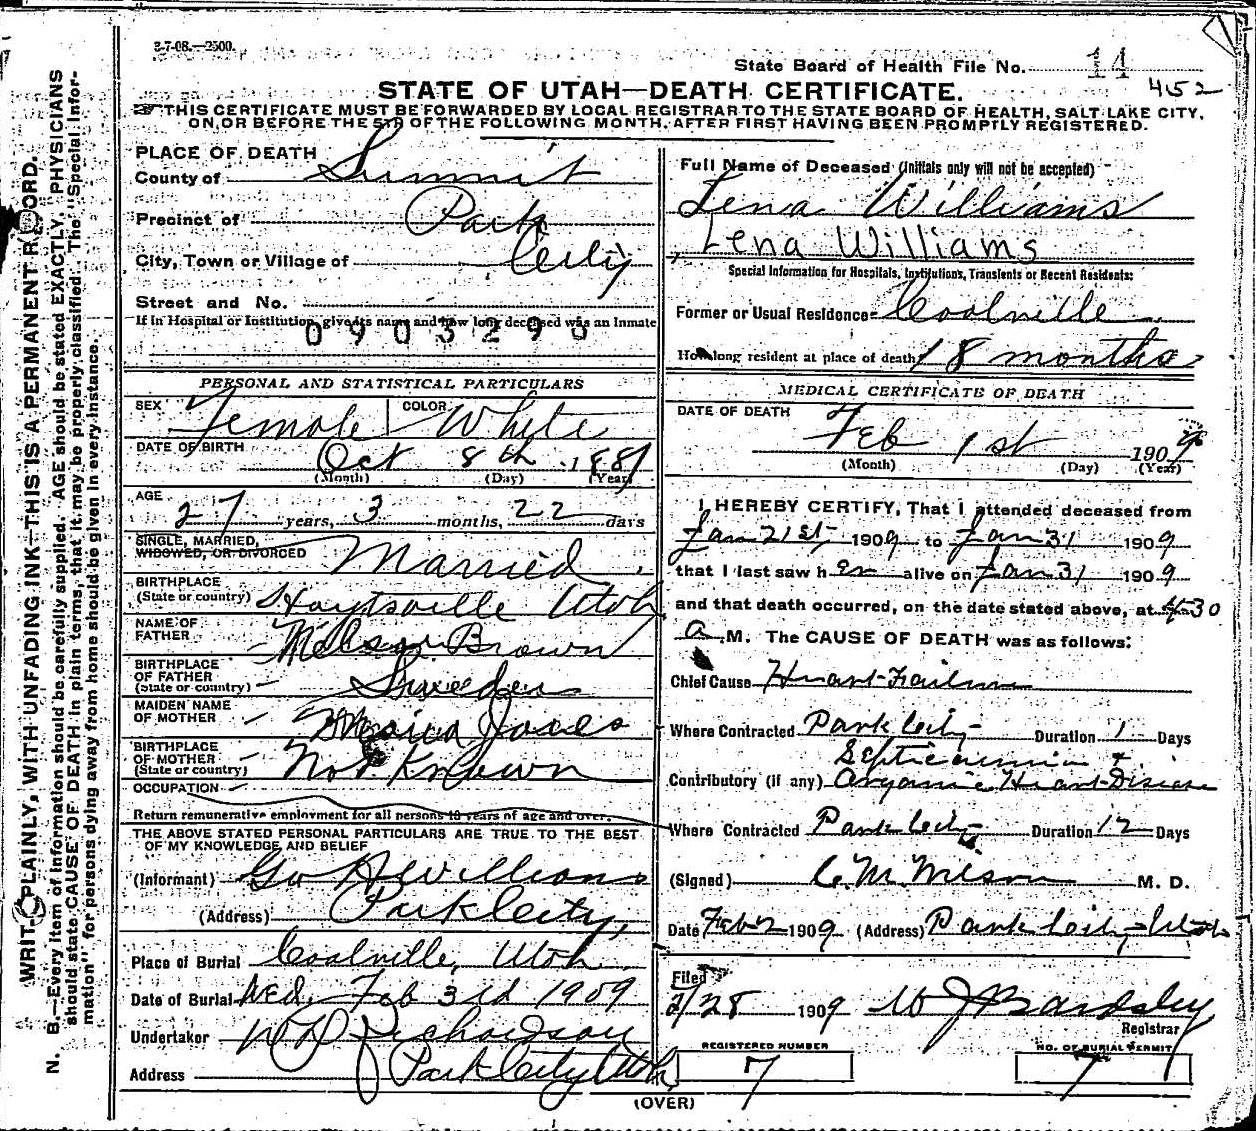 3-7-08.—2500.
State Board of Health File No. 14
452
STATE OF UTAH—DEATH CERTIFICATE.
THIS CERTIFICATE MUST BE FORWARDED BY LOCAL REGISTRAR TO THE STATE BOARD OF HEALTH, SALT LAKE CITY,
ON, OR BEFORE THE 5TH OF THE FOLLOWING MONTH, AFTER FIRST HAVING BEEN PROMPTLY REGISTERED.
PLACE OF DEATH
County of Summit
Precinct of Park
City, Town or Village of City
Street and No.
If in Hospital or Institution, give its name and how long deceased was an Inmate
0903290
PERSONAL AND STATISTICAL PARTICULARS
SEX Female COLOR White
DATE OF BIRTH Oct 8th 1881
(Month) (Day) (Year)
AGE 27 years, 3 months, 22 days
SINGLE, MARRIED,
WIDOWED, OR DIVORCED Married
BIRTHPLACE
(State or country) Hoytsville Utah
NAME OF
FATHER Brown
BIRTHPLACE
OF FATHER
(State or country) Sweden
MAIDEN NAME
OF MOTHER
BIRTHPLACE
OF MOTHER
(State or country) Not Known
OCCUPATION
Return remunerative employment for all persons 10 years of age and over.
THE ABOVE STATED PERSONAL PARTICULARS ARE TRUE TO THE BEST
OF MY KNOWLEDGE AND BELIEF
(Informant) Geo H Williams
(Address) Park City,
Place of Burial Coalville, Utah
Date of Burial Wed, Feb 3rd 1909
Undertaker W D Richardson
Address Park City Utah
Full Name of Deceased (Initials only will not be accepted)
Lena Williams
Lena Williams
Special Information for Hospitals, Institutions, Transients or Recent Residents:
Former or Usual Residence Coalville
How long resident at place of death 18 months
MEDICAL CERTIFICATE OF DEATH
DATE OF DEATH
Feb 1st 1909
(Month) (Day) (Year)
I HEREBY CERTIFY, That I attended deceased from
Jan 21st, 1909 to Jan 31 1909
that I last saw her alive on Jan 31 1909
and that death occurred, on the date stated above, at 4:30
a M. The CAUSE OF DEATH was as follows:
Chief Cause Heart Failure
Where Contracted Park City Duration 1 Days
Septicaemia +
Contributory (if any) Organic Heart Disease
Where Contracted Park City Duration 12 Days
(Signed) C. M. Wilson M. D.
Date Feb 2 1909 (Address) Park City Utah
Filed
2/28 1909 W J Bardsley
Registrar
REGISTERED NUMBER
7
NO. OF BURIAL PERMIT
7
(OVER)
WRITE PLAINLY, WITH UNFADING INK—THIS IS A PERMANENT RECORD.
N. B.—Every item of information should be carefully supplied. AGE should be stated EXACTLY. PHYSICIANS
should state CAUSE OF DEATH in plain terms, that it may be properly classified. The "Special Infor-
mation" for persons dying away from home should be given in every instance.